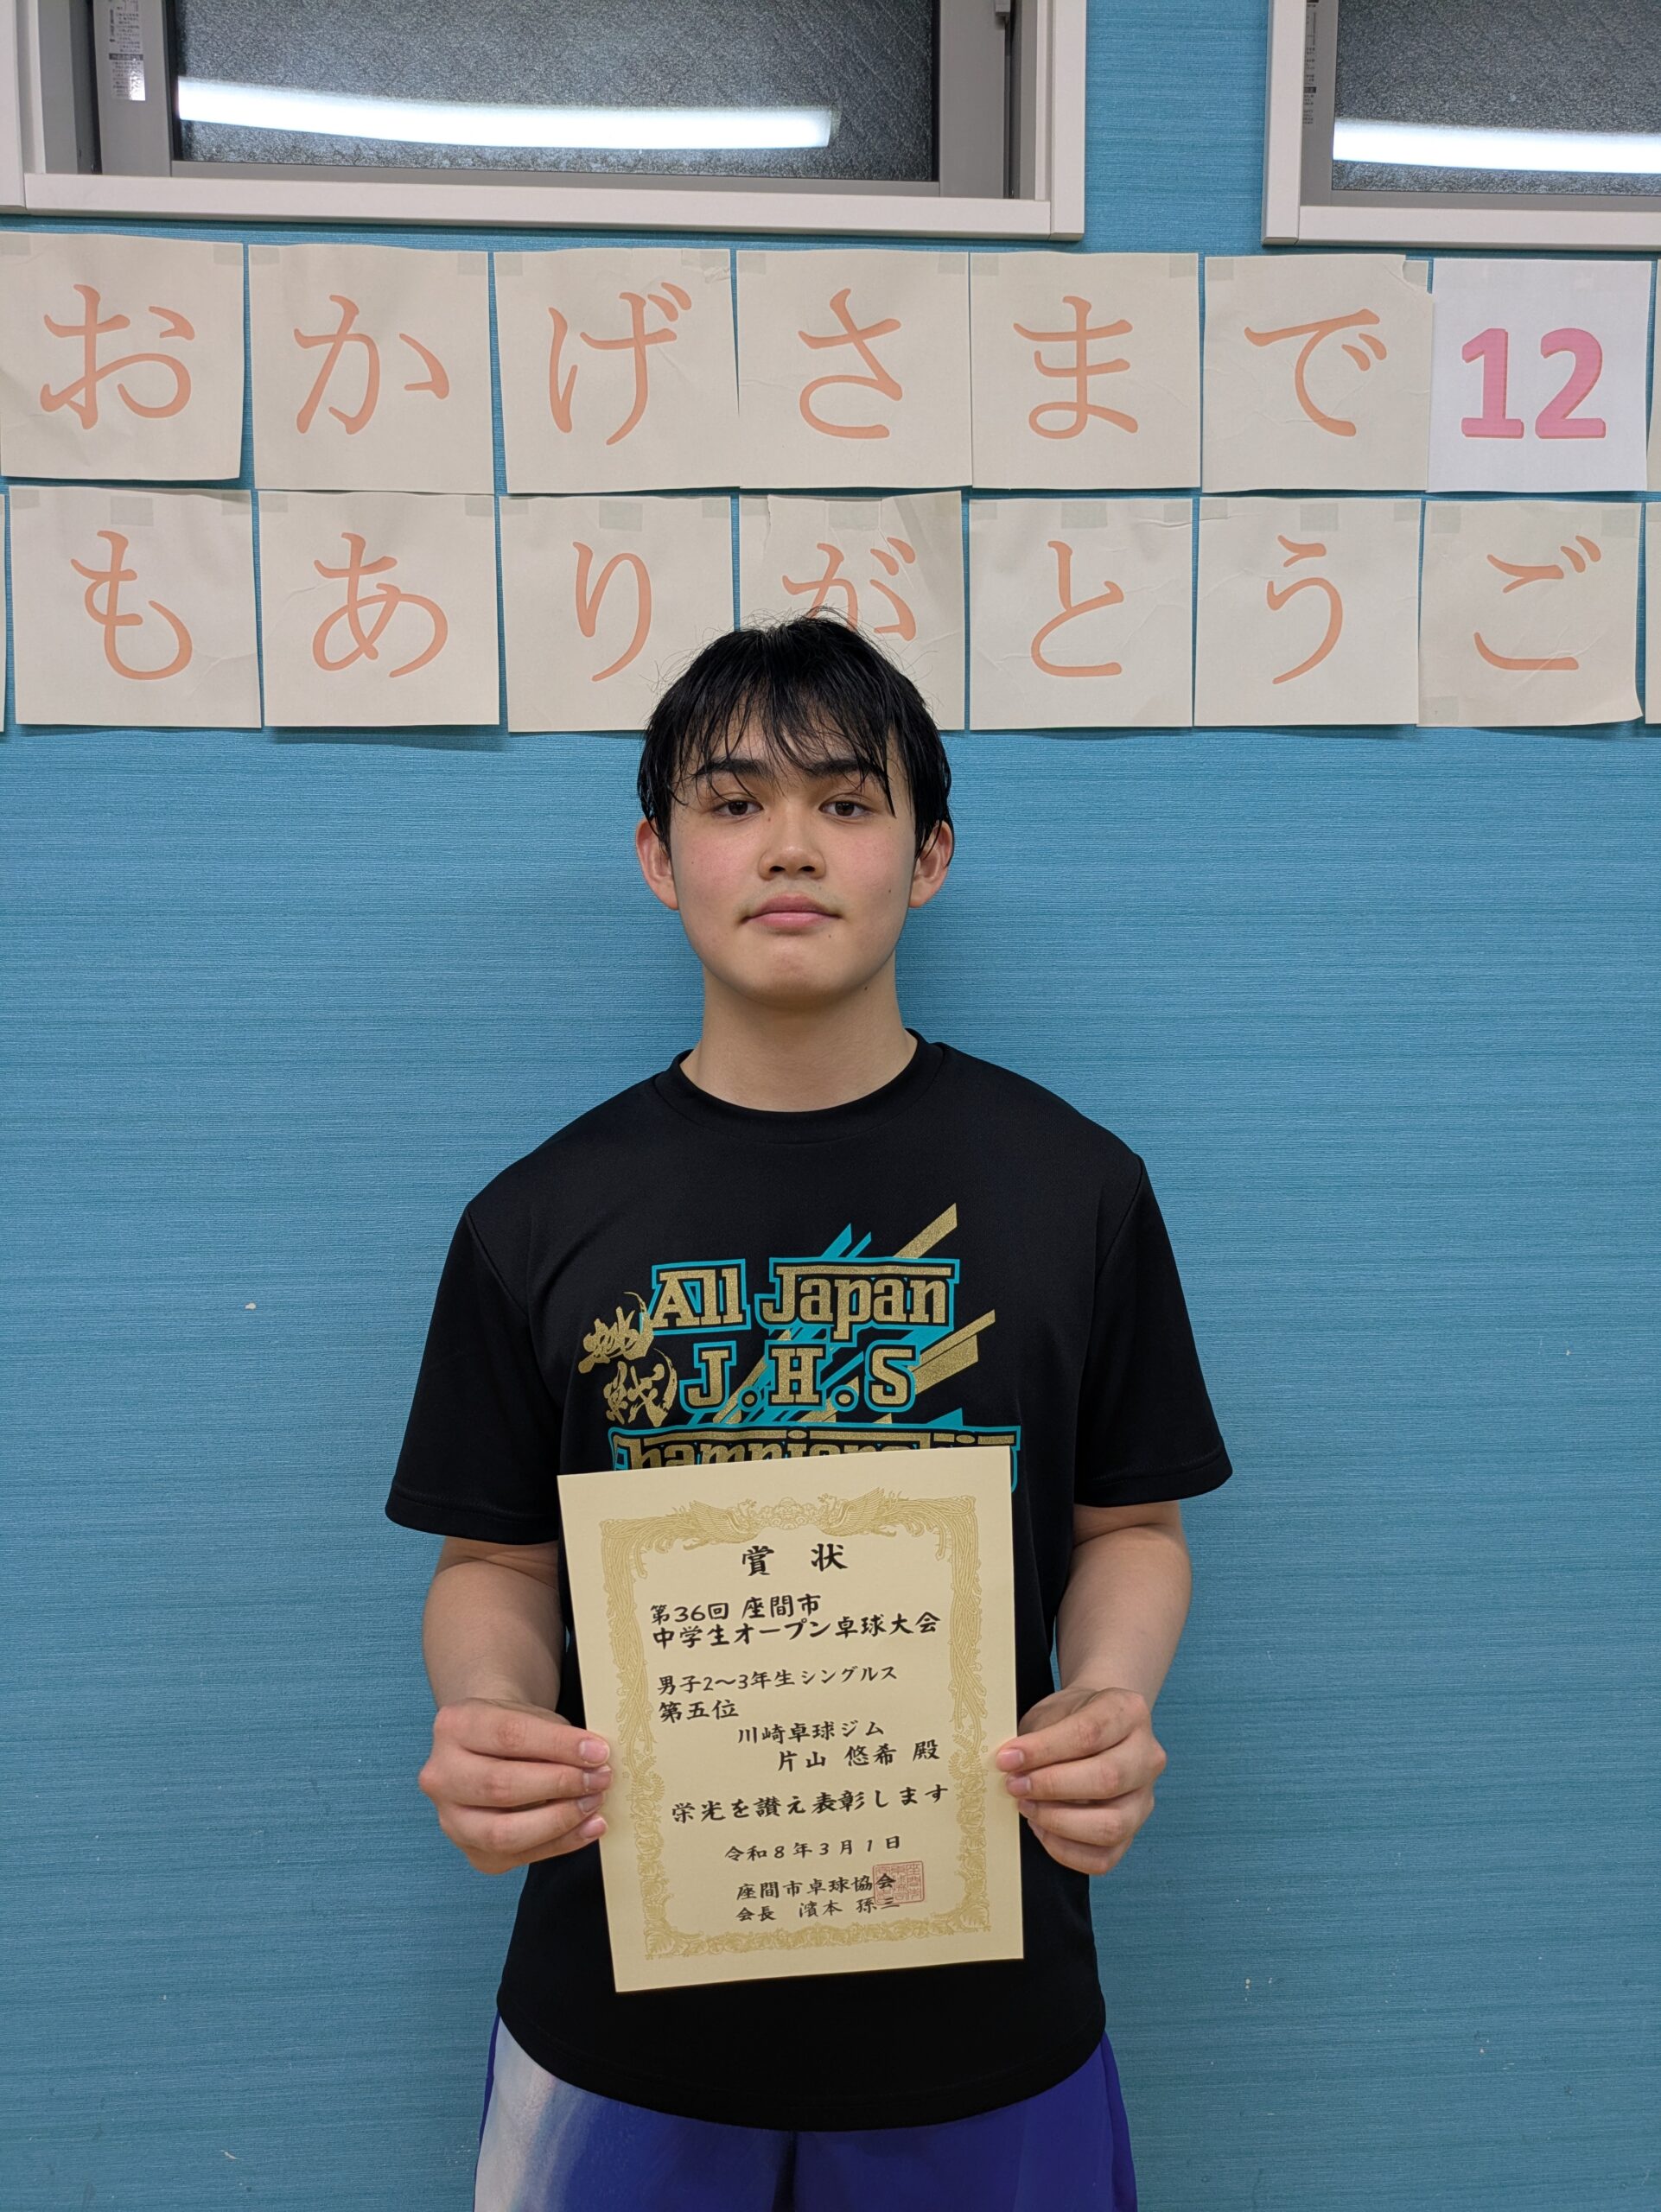 おかげさまで12
もありがとうご
挑戦
All Japan
J.H.S
Championship
賞状
第36回 座間市
中学生オープン卓球大会
男子2～3年生シングルス
第五位
川崎卓球ジム
片山 悠希 殿
栄光を讃え表彰します
令和8年3月1日
座間市卓球協会
会長 濱本 孫三